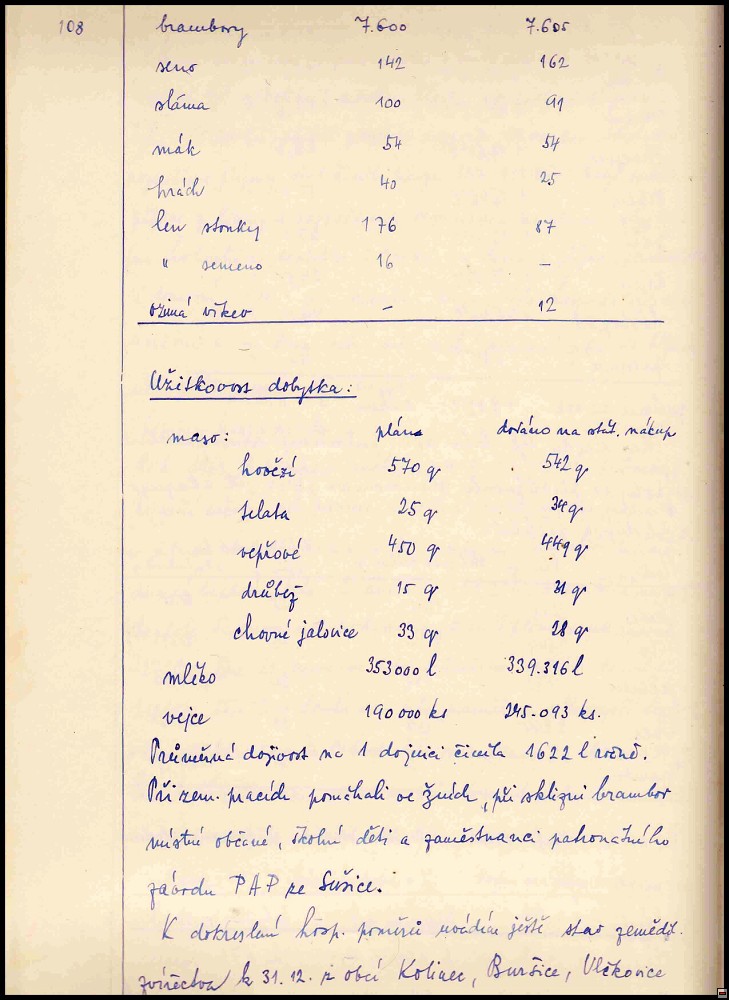 108 brambory 7.600 7.605
seno 142 162
sláma 100 91
mák 54 54
hrách 40 25
len stonky 176 87
" semeno 16 —
ozimá vikev — 12
Užitkovost dobytka:
maso: plán dodáno na stát. nákup
hovězí 570 q 542 q
telata 25 q 34 q
vepřové 450 q 449 q
drůbež 15 q 31 q
chovné jalovice 33 q 28 q
mléko 353000 l 339.316 l
vejce 190 000 ks 245.093 ks.
Průměrná dojivost na 1 dojnici činila 1622 l ročně.
Při zem. pracích pomáhali ve žních, při sklizni brambor
místní občané, školní děti a zaměstnanci patronátního
závodu PAP ze Sušice.
K dokreslení hosp. poměrů uvádím ještě stav zeměděl.
zvířectva k 31.12. z obcí Kolinec, Buršice, Vlčkovice